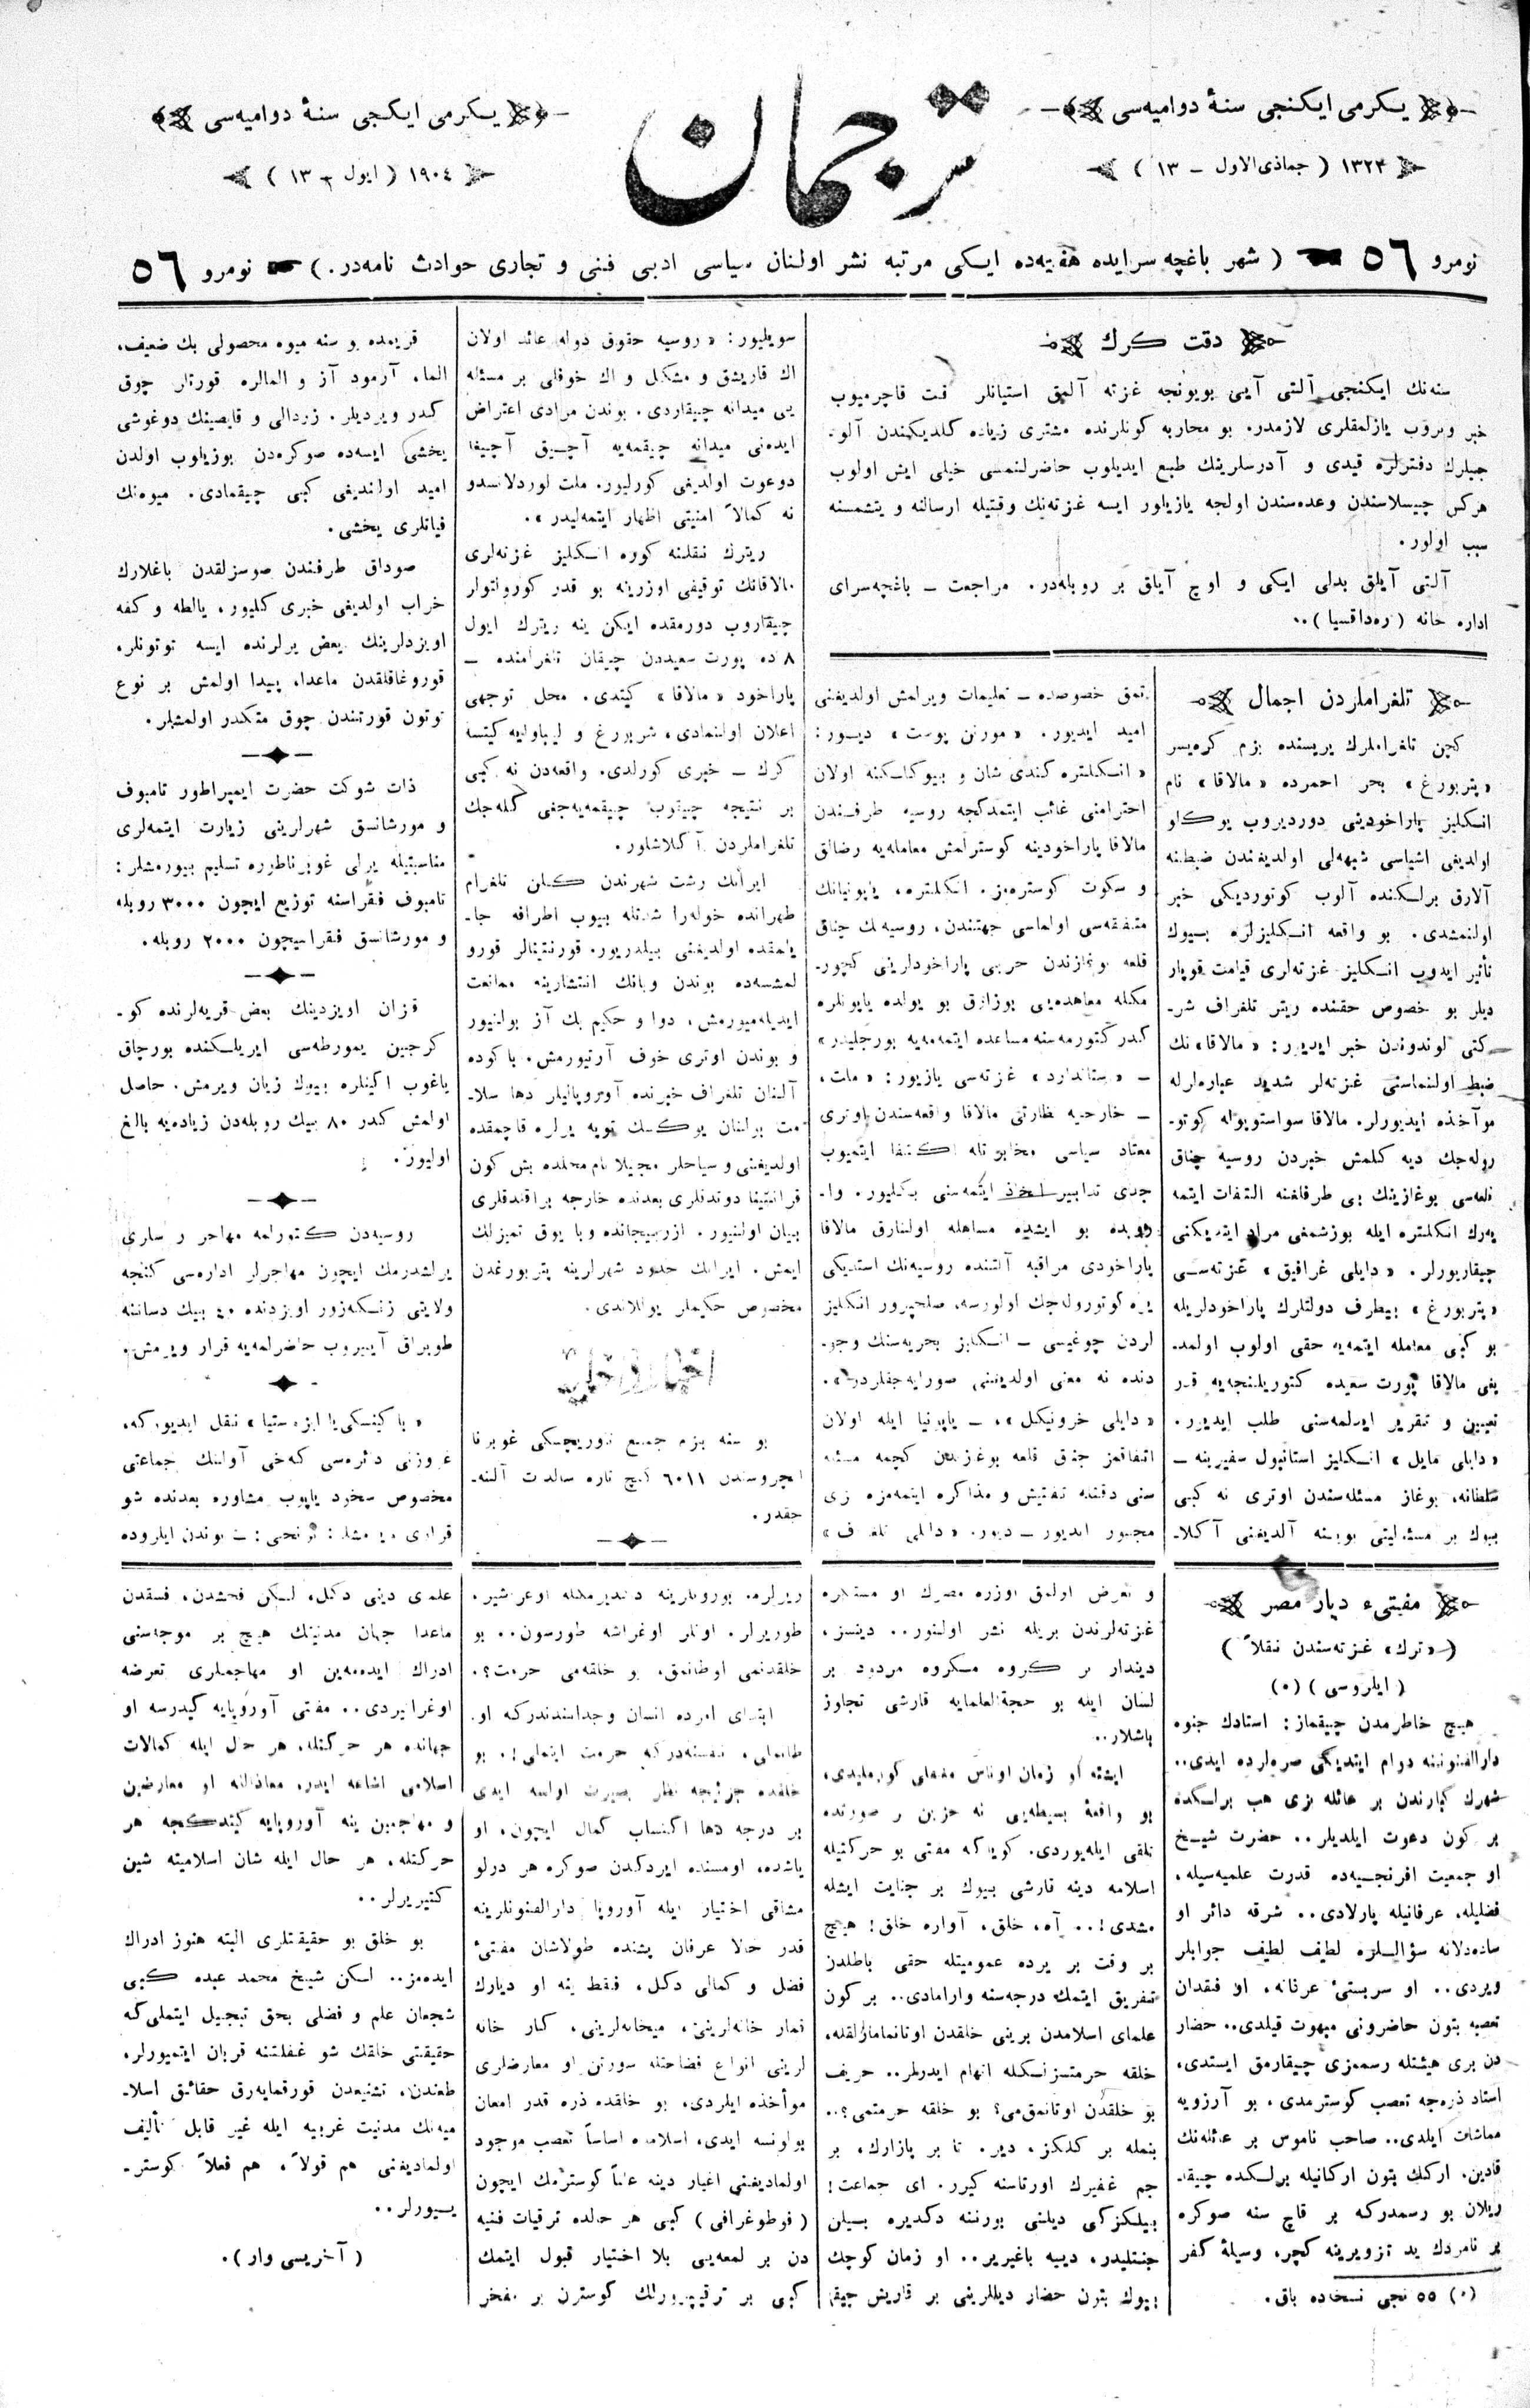 يكرمى ايكنجى سنۀ دواميه‌سى
١٣٢٢ ( جماذى‌الاول ـ ١٣ )
ترجمان
يكرمى ايكنجى سنۀ دواميه‌سى
١٩٠٤ ( ايول ـ ١٣ )
نومرو ٥٦ ( شهر باغچه سرايده هفته‌ده ايكى مرتبه نشر اولنان سياسى ادبى فنى و تجارى حوادث نامه‌در. ) نومرو ٥٦
دقت كرك
سنه‌نك ايكنجى آلتى آيى بويونجه غزته آلمق استيانلر قت قاچرميوب
خبر ويروب يازلمقلرى لازمدر. بو محاربه كونلرنده مشترى زياده كلديكندن آلو-
جيلرك دفترلره قيدى و آدرسلرينك طبع ايديلوب حاضرلنمسى خيلى ايش اولوب
هركس چيسلاسندن وعده‌سندن اولجه يازيلور ايسه غزته‌نك وقتيله ارسالنه ويتشمسنه
سبب اولور.
آلتى آيلق بدلى ايكى و اوچ آيلق بر روبله‌در. مراجعت ـ باغچه‌سراى
اداره خانه (ره‌داقسيا)..
تلغراملردن اجمال
كچن تلغراملرك بريسنده بزم كره‌يسر
«پتربورغ» بحر احمرده «مالاقا» نام
انكليز پاراخودينى دورديروب يوكلو
اولديغى اشياسى شبهه‌لى اولديغندن ضبطنه
آلارق برلكنده آلوب كوتورديكى خبر
اولنمشدى. بو واقعه انكليزلره بيوك
تأثير ايدوب انكليز غزته‌لرى قيامت قوپار
ديلر بو خصوص حقنده ريتر تلغراف شر-
كتى لوندوندن خبر ايديور: «مالاقا» نك
ضبط اولنماسنى غزته‌لر شديد عباره‌لرله
موآخذه ايديورلر. مالاقا سواستوپوله كوتو-
روله‌جك ديه كلمش خبردن روسيه چناق
قلعه‌سى بوغازينك بى طرفلغنه التفات ايتمه
يه‌رك انكلتره ايله بوزشمغى مراد ايتديكنى
چيقاريورلر. «دايلى غرافيق» غزته‌سى
«پتربورغ» بيطرف دولتلرك پاراخودلريله
بو كبى معامله ايتمه‌يه حقى اولوب اولمد-
يغى مالاقا پورت سعيده كتوريلنجه‌يه قدر
تعيين و تقرير ايدلمه‌سنى طلب ايديور.
«دايلى مايل» انكليز استانبول سفيرينه ـ
سلطانه، بوغاز مسئله‌سندن اوترى نه كبى
بيوك بر مسئوليتى بويننه آلديغنى آكلا-
تمق خصوصده ـ تعليمات ويرلمش اولديغنى
اميد ايديور. «مورنن پوست» ديور:
«انكلتره كندى شان و بيوكلكنه اولان
احترامنى غائب ايتمدكجه روسيه طرفندن
مالاقا پاراخودينه كوسترلمش معامله‌يه رضالق
و سكوت كوستره‌مز. انكلتره، ياپونيانك
متفقه‌سى اولماسى جهتندن، روسيه‌نك چناق
قلعه بوغازندن حربى پاراخودلرينى كچور-
مكله معاهده‌يى بوزارق بو يولده ياپونلره
كدر كتورمه‌سنه مساعده ايتمه‌مه‌يه بورجليدر»
ـ «ستاندارد» غزته‌سى يازيور: «ملت،
ـ خارجيه نظارتى مالاقا واقعه‌سندن اوترى
معتاد سياسى مخابرتله اكتفا ايتميوب
جدى تدابير اخذ ايتمه‌سنى بكليور. وا-
رنده بو ايشده مساهله اولنارق مالاقا
پاراخودى مراقبه آلتنده روسيه‌نك استديكى
يره كوتوروله‌جك اولورسه، صلحپرور انكليز
لردن چوغيسى ـ انكليز بحريه‌سنك وجو-
دنده نه معنى اولديغنى صورايه‌جقلردر».
«دايلى خرونيكل»، ـ ياپونيا ايله اولان
اتفاقمز چناق قلعه بوغازندن كچمه مسئله
سنى دقتله تفتيش و مذاكره ايتمه‌مزه بزى
مجبور ايديور ـ ديور. «دايلى تلغراف»
سويليور: «روسيه حقوق دوله عائد اولان
اك قاريشق و مشكل و اك خوفلى بر مسئله
يى ميدانه چيقاردى. بوندن مرادى اعتراض
ايده‌نى ميدانه چيقمه‌يه آچيق آچيغا
دوعوت اولديغى كورليور. ملت لوردلانسدو
نه كمالاً امنيتى اظهار ايتمه‌ليدر».
ريترك نقلنه كوره انكليز غزته‌لرى
مالاقانك توقيفى اوزرينه بو قدر كورولتولر
چيقاروب دورمقده ايكن ينه ريترك ايول
٨ ده پورت سعيددن چيقان تلغرامنده ـ
پاراخود «مالاقا» كيتدى. محل توجهى
اعلان اولنمادى، شربورغ و ليباوايه كيتسه
كرك ـ خبرى كورلدى. واقعه‌دن نه كبى
بر نتيجه چيقوب چيقمه‌يه‌جغى كله‌جك
تلغراملردن آكلاشلور.
ايرانك رشت شهرندن كلن تلغرام
طهرانده خوله‌را شدتله بيوب اطرافه جا-
يلمقده اولديغنى بيلدريور. قورنتينالر قورو
لمشسه‌ده بوندن وبانك انتشارينه ممانعت
ايديله‌ميورمش، دوا و حكيم بك آز بولنيور
و بوندن اوترى خوف آرتيورمش. باكوده
آلنان تلغراف خبرنده آوروپاليلر دها سلا-
مت بولنان يوكسك توبه يرلره قاچمقده
اولديغنى و سياحلر مجيلا نام محلده بش كون
قرانتينا دوتدقلرى بعدنده خارجه براقندقلرى
بيان اولنيور. ازربيجانده وبا يوق تميزلك
ايمش. ايرانك حدود شهرلرينه پتربورغدن
مخصوص حكيملر يوللاندى.
اخبار داخليه
بو سنه بزم جميع تاوريچسكى غوبرنا
اچروسندن ٦٠١١ كيچ تازه سالدات آلنه-
جقدر.
قريمده بو سنه ميوه محصولى بك ضعيف.
الما، آرمود آز و المالره قورتلر چوق
كدر ويرديلر. زردالى و قايصينك دوغوشى
يخشى ايسه‌ده صوكره‌دن بوزيلوب اولدن
اميد اولنديغى كبى چيقمادى. ميوه‌نك
فيآتلرى يخشى.
صوداق طرفندن صوسزلقدن باغلارك
خراب اولديغى خبرى كليور، يالطه و كفه
اويزدلرينك بعض يرلرنده ايسه توتونلر،
قوروغاقلقدن ماعدا، پيدا اولمش بر نوع
توتون قورتندن چوق متكدر اولمشلر.
ذات شوكت حضرت ايمپراطور تامبوف
و مورشانسق شهرلرينى زيارت ايتمه‌لرى
مناسبتيله يرلى غوبرناطوره تسليم بيورمشلر:
تامبوف فقراسنه توزيع ايچون ٣٠٠٠ روبله
و مورشانسق فقراسيچون ٢٠٠٠ روبله.
قزان اويزدينك بعض قريه‌لرنده كو-
كرجين يمورطه‌سى ايريلكنده بورچاق
ياغوب اكينلره بيوك زيان ويرمش. حاصل
اولمش كدر ٨٠ بيك روبله‌دن زياده‌يه بالغ
اوليور.
روسيه‌دن كتورلمه مهاجر و سارى
يرلشدرمك ايچون مهاجرلر اداره‌سى كنجه
ولايتى زنكه‌زور اويزدنده ٤٠ بيك دساتنه
طوپراق آييروب حاضرلمه‌يه قرار ويرمش.
«باكينسكى‌يا ايزوستيا» نقل ايديوركه،
غروزنى دائره‌سى كه‌خى آولنك جماعتى
مخصوص سخود ياپوب مشاوره بعدنده شو
قرارى ويرمشلر: برنجى: ـ بوندن ايلروده
مفتىء ديار مصر
(«ترك» غزته‌سندن نقلاً)
(ايلروسى) (٠)
هيچ خاطرمدن چيقماز: استادك جنوه
دارالفنوننه دوام ايتديكى صره‌لرده ايدى..
شهرك كبارندن بر عائله بزى هب برلكده
بر كون دعوت ايلديلر.. حضرت شيخ
او جمعيت افرنجيه‌ده قدرت علميه‌سيله،
فضليله، عرفانيله پارلادى.. شرقه دائر او
ساده‌دلانه سؤاللره لطيف لطيف جوابلر
ويردى.. او سربستئ عرفانه، او فقدان
تعصبه بتون حاضرونى مبهوت قيلدى.. حضار
دن برى هيئتله رسممزى چيقارمق ايستدى،
استاد ذره‌جه تعصب كوسترمدى، بو آرزويه
مماشات ايلدى.. صاحب ناموس بر عائله‌نك
قادين، اركك بتون اركانيله برلكده چيقا-
ريلان بو رسمدركه بر قاچ سنه صوكره
بر نامردك يد تزويرينه كچر، وسيلۀ كفر
(٠) ٥٥ نجى نسخه‌ده باق.
و تعرض اولمق اوزره مصرك او مستكره
غزته‌لرندن بريله نشر اولنور.. دينسز،
ديندار بر كروه مكروه مردود بر
لسان ايله بو حجة‌العلمايه قارشى تجاوز
باشلار..
ايشته او زمان اوناس مغفلى كورمليدى،
بو واقعۀ بسيطه‌يى نه حزين بر صورتده
تلقى ايله‌يوردى. كويا كه مفتى بو حركتيله
اسلامه دينه قارشى بيوك بر جنايت ايشله
مشدى!.. آه، خلق، آواره خلق! هيچ
بر وقت بر يرده عموميتله حقى باطلدن
تفريق ايتمك درجه‌سنه وارامادى.. بر كون
علماى اسلامدن برينى خلقدن اوتانمامازلقله،
خلقه حرمتسزلكله اتهام ايدرلر.. حريف
بو خلقدن اوتانمق‌مى؟ بو خلقه حرمتمى؟..
بنمله بر كلكز، دير. تا بر پازارك، بر
جم غفيرك اورتاسنه كيرر. اى جماعت!
بيلكزكى ديلنى بورننه دكديره بيلن
جنتليدر، دييه باغيرير.. او زمان كوچك
بيوك بتون حضار ديللرينى بر قاريش چيقا
ريرلره. بورونلرينه دكديرمكله اوغراشير،
طوريرلر. اونلر اوغراشه طورسون.. بو
خلقدنمى اوطانمق، بو خلقه‌مى حرمت؟.
ابتداى امرده انسان وجداننددركه او-
طانملى، نفسنه‌دركه حرمت ايتملى!. بو
خلقده جزئيجه نظر بصيرت اولسه ايدى
بر درجه دها اكتساب كمال ايچون، او
ياشده، او مسنده ايردكدن صوكره هر درلو
مشاقى اختيار ايله آوروپا دارالفنونلرينه
قدر حالا عرفان پشنده طولاشان مفتئ
فضل و كمالى دكل، فقط ينه او ديارك
قمار خانه‌لرينى، ميخانه‌لرينى، كنار خانه
لرينى انواع فضاحتله سورتن او معارضلرى
موأخذه ايلردى. بو خلقده ذره قدر امعان
بولونسه ايدى، اسلامده اساساً تعصب موجود
اولماديغنى اغيار دينه علناً كوسترمك ايچون
(فوطوغرافى) كبى هر حالده ترقيات فنيه
دن بر لمعه‌يى بلا اختيار قبول ايتمك
كبى بر ترقيپرورلك كوسترن بر مفخر
علمدى دينى دكل، لكن فحشدن، فسقدن
ماعدا جهان مدنيتك هيچ بر موجه‌سنى
ادراك ايده‌مه‌ين او مهاجملرى تعرضه
اوغراتيردى.. مفتى آوروپايه كيدرسه او
جهانده هر حركتله، هر حال ايله كمالات
اسلامى اشاعه ايدر. معاذالله او معارضين
و مهاجمين ينه آوروپايه كيتدكجه هر
حركتله، هر حال ايله شان اسلاميته شين
كتيريرلر..
بو خلق بو حقيقتلرى البته هنوز ادراك
ايده‌مز.. لكن شيخ محمد عبده كبى
شجعان علم و فضلى بحق تبجيل ايتملى‌كه
حقيقتى خلقك شو غفلتنه قربان ايتميورلر،
طعندن، تشنيعدن قورقمايه‌رق حقائق اسلا-
ميه‌نك مدنيت غربيه ايله غير قابل تأليف
اولماديغنى هم قولاً، هم فعلاً كوستر-
ييورلر..
(آخريسى وار).